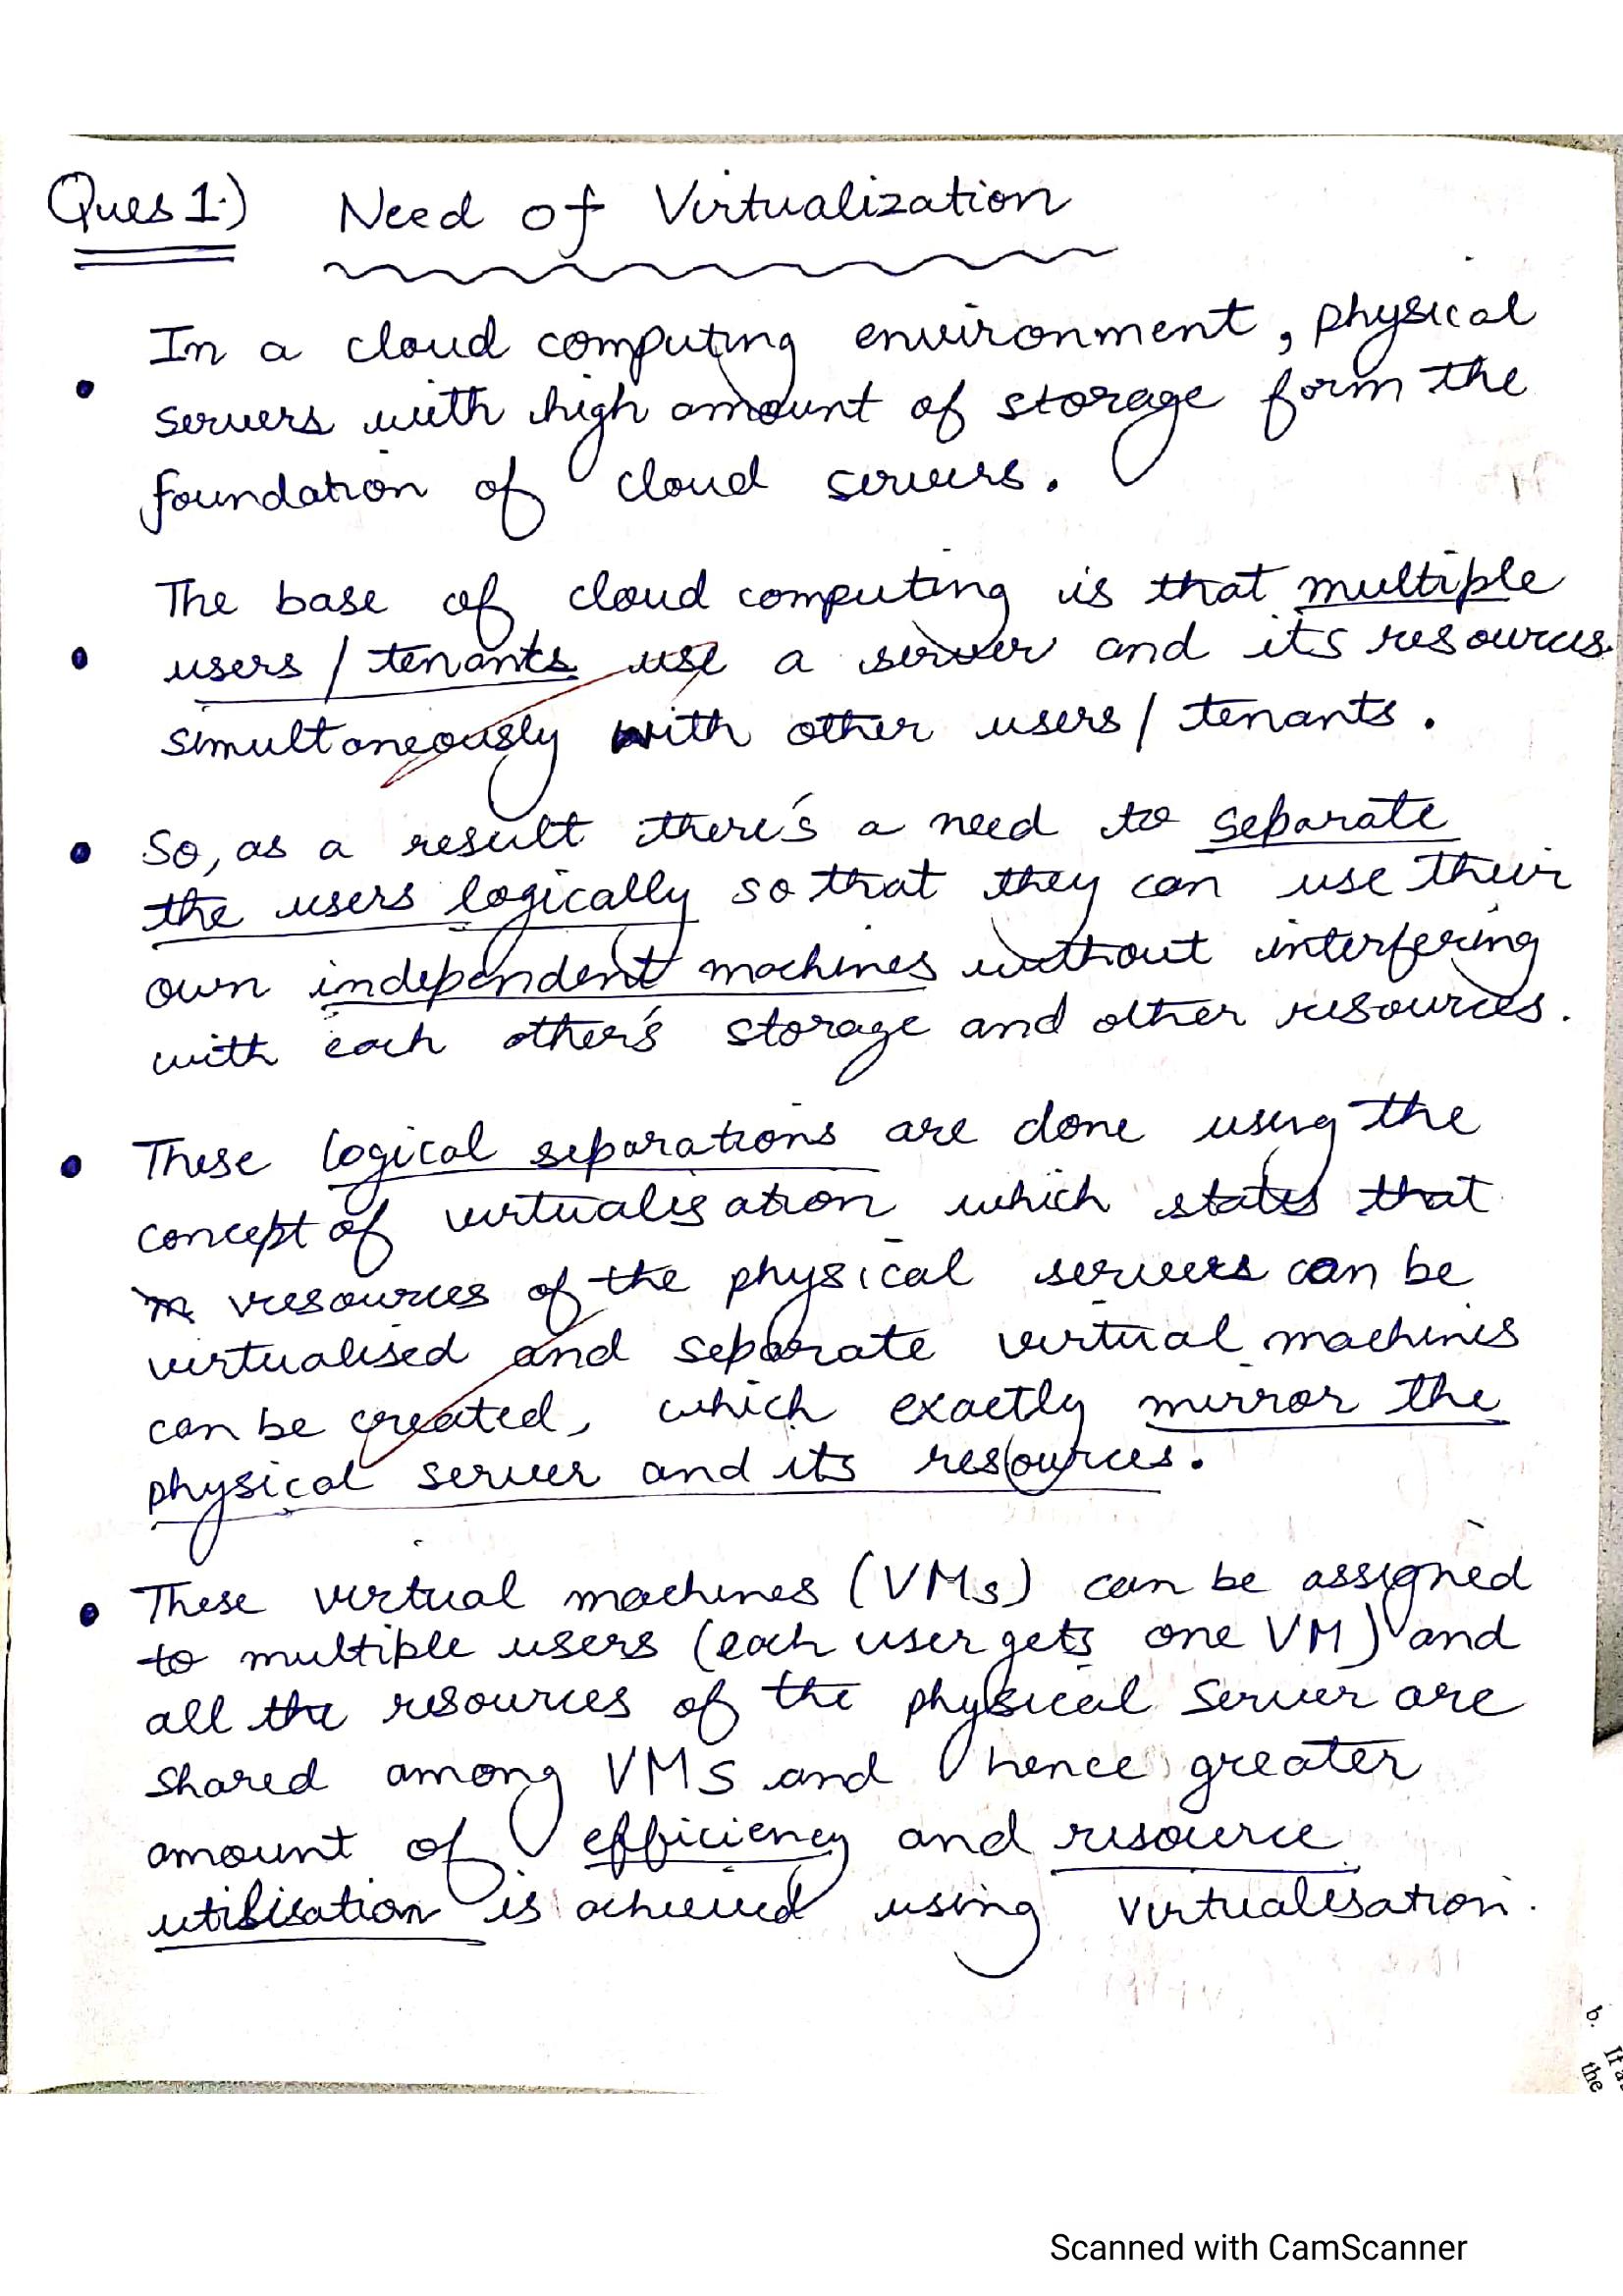 Ques 1.) Need of Virtualization
In a cloud computing environment, physical
• servers with high amount of storage form the
foundation of cloud servers.
The base of cloud computing is that multiple
• users / tenants use a server and its resources
simultaneously with other users / tenants.
• So, as a result there's a need to separate
the users logically so that they can use their
own independent machines without interfering
with each other's storage and other resources.
• These logical separations are done using the
concept of virtualisation which states that
resources of the physical servers can be
virtualised and separate virtual machines
can be created, which exactly mirror the
physical server and its resources.
• These virtual machines (VMs) can be assigned
to multiple users (each user gets one VM) and
all the resources of the physical server are
shared among VMs and hence greater
amount of efficiency and resource
utilisation is achieved using virtualisation.
b. It
the
Scanned with CamScanner